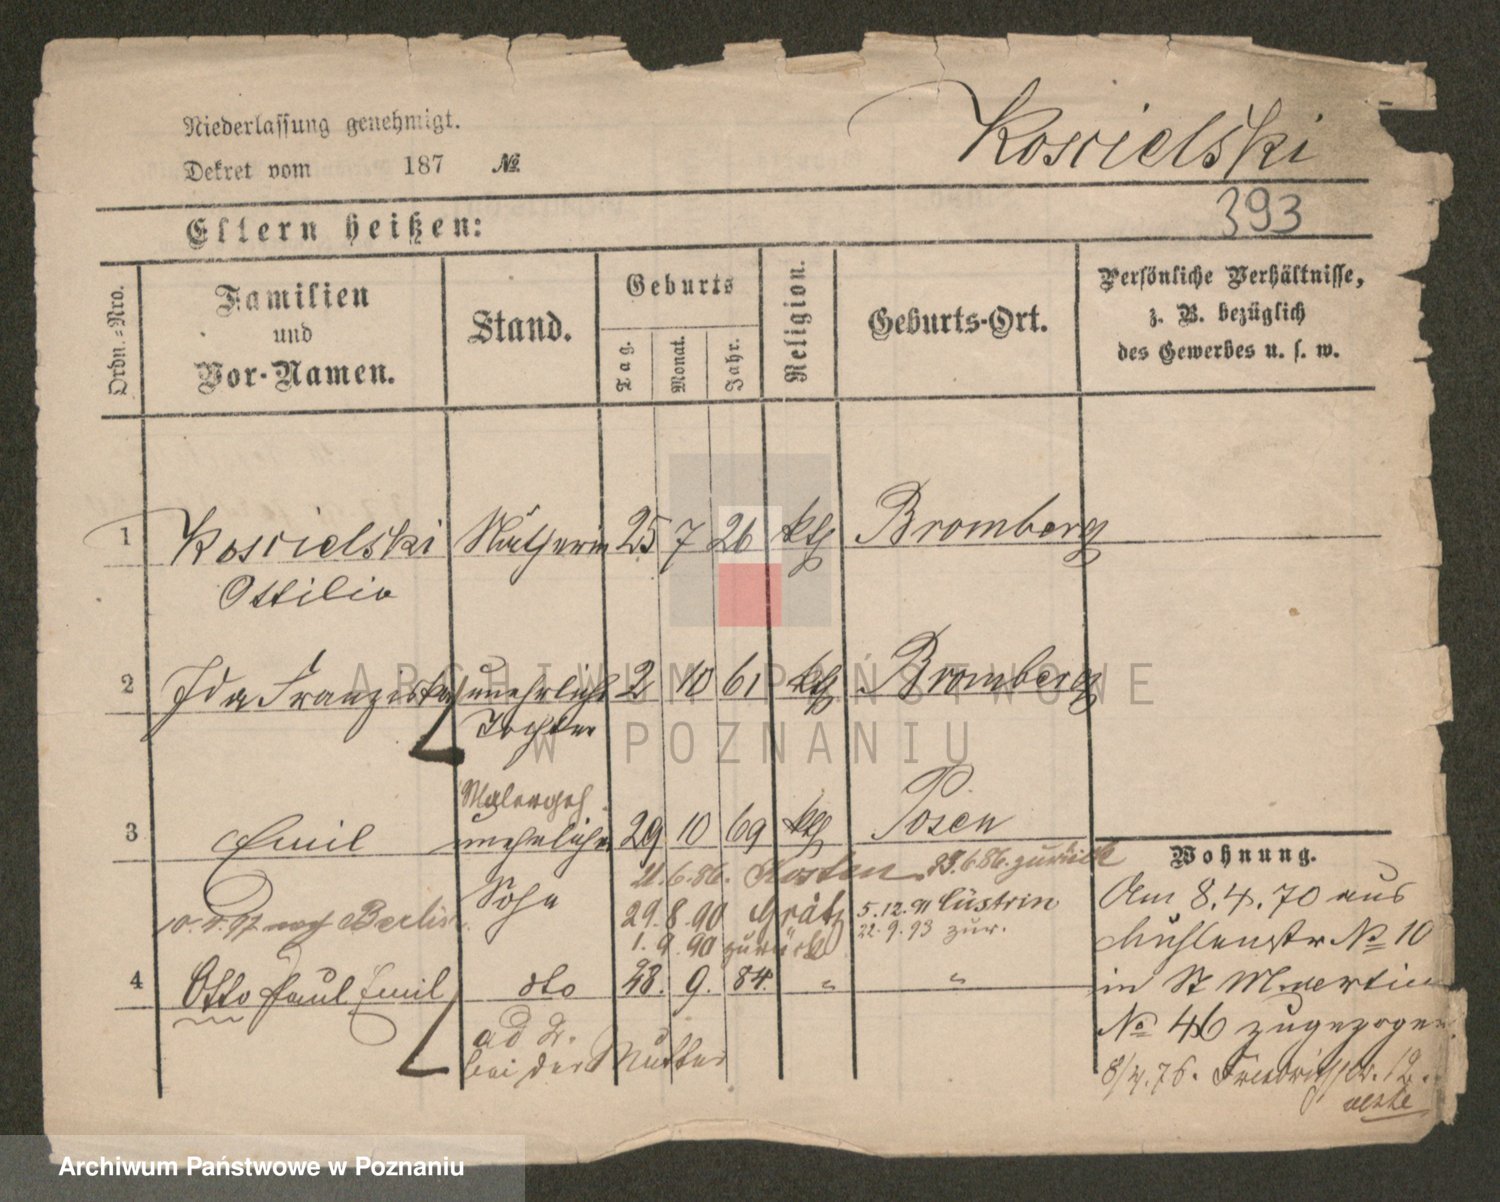 Niederlassung genehmigt.
Dekret vom 187 №
Koscielski
393
Eltern heißen:
Ordn.-Nro.
Familien und Vor-Namen.
Stand.
Geburts
Tag.
Monat.
Jahr.
Religion.
Geburts-Ort.
Persönliche Verhältnisse,
z. B. bezüglich
des Gewerbes u. s. w.
1 Koscielski Nätherin 25 7 26 kth Bromberg
Ottilie
2 Ida Franziska unehrliche 2 10 61 kth Bromberg
Tochter
Malergeh.
3 Emil unehrlicher 29 10 69 kth Posen
Sohn
21.6.86. Kosten 23.6.86. zurück
29.8.90 Grätz 5.12.91 Cüstrin
1.9.90 zurück 22.9.93 zur.
nach Berlin.
4 Otto Paul Emil dto 28. 9. 84. " "
ad 2.
bei der Mutter
Wohnung.
Am 8.4.70 aus
Mühlenstr № 10
in St Martin
№ 46 zugezogen
8/4.76. Friedrichstr. 12.
ARCHIWUM PAŃSTWOWE
W POZNANIU
Archiwum Państwowe w Poznaniu